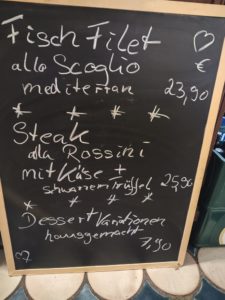 Fisch Filet
allo Scoglio €
mediterran 23,90
* * * *
Steak
alla Rossini
mit Käse +
schwarzem Trüffel 25,90
* * * *
Dessert Variationen
hausgemacht
7,90